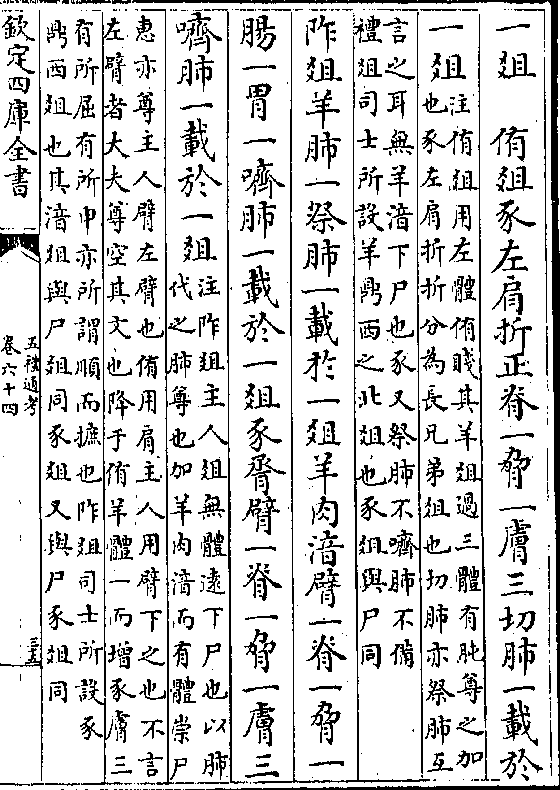 一俎　侑俎豕左肩折正脊一脅一膚三切肺一載於
一俎注侑俎用左體侑賤其羊俎過三體有肫尊之加
也豕左肩折折分為長兄弟俎也切肺亦祭肺互
言之耳無羊湆下尸也豕又祭肺不嚌肺不備
禮俎司士所設羊鼎西之北俎也豕俎與尸同
阼俎羊肺一祭肺一載於一俎羊肉湆臂一脊一脅一
腸一胃一嚌肺一載於一俎豕脀臂一脊一脅一膚三
嚌肺一載於一俎注阼俎主人俎無體遠下尸也以肺
代之肺尊也加羊肉湆而有體崇尸
惠亦尊主人臂左臂也侑用肩主人用臂下之也不言
左臂者大夫尊空其文也降于侑羊體一而增豕膚三
有所屈有所申亦所謂順而摭也阼俎司士所設豕
鼎西俎也其湆俎與尸俎同豕俎又與尸豕俎同
欽定四庫全書
五禮通考
卷六十四
三五